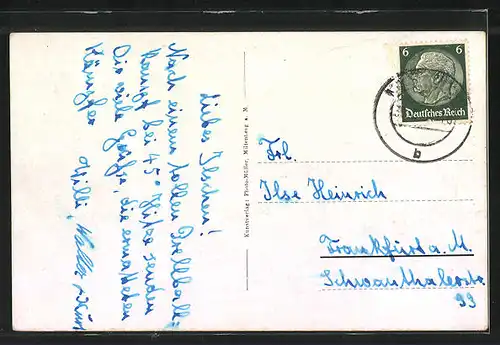 Liebes Ilschen!
Nach einem tollen Prellball=
kampf bei 45° Hitze senden
Dir viele Grüße, die ermatteten
Kämpfer
Hilli, Walter
Kunstverlag: Photo-Müller, Miltenberg a. M.
6 6
Deutsches Reich
b
Frl.
Ilse Heinrich
Frankfurt a. M.
Schwanthalerstr.
99